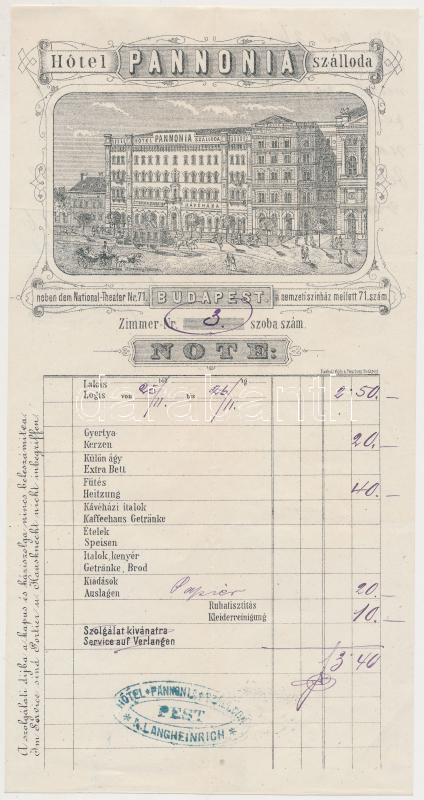 Hôtel PANNONIA szálloda
HÔTEL PANNONIA SZÁLLODA
KÁVÉHÁZ
neben dem National-Theater Nr. 71. BUDAPEST. a nemzeti színház mellett 71. szám.
Zimmer Nr. 3. szoba szám.
NOTE:
Lakás 25/11. től 26/11. ig 2.50.—
Logis von bis
Gyertya 20.—
Kerzen
Külön ágy
Extra Bett
Fütés 40.—
Heitzung
Kávéházi italok
Kaffeehaus Getränke
Ételek
Speisen
Italok, kenyér
Getränke, Brod
Kiadások
Auslagen Papier 20.—
Ruhatisztitás
Kleiderreinigung 10.—
Szolgálat kivánatra
Service auf Verlangen
3.40
HÔTEL PANNONIA SZÁLLODA
PEST
* A. LANGHEINRICH *
A szolgálati dijba a kapus és háziszolga nincs beleszámitva.
Im Service sind Portier u. Hausknecht nicht inbegriffen.
darabanth